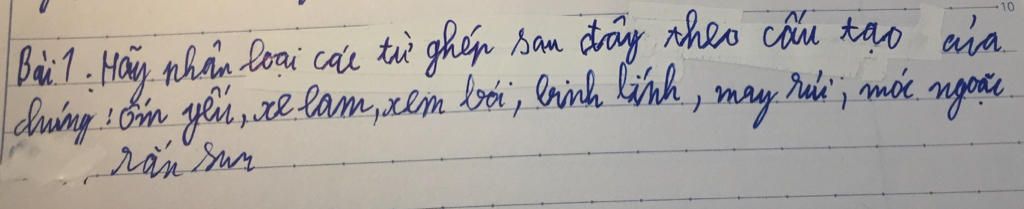 10
Bài 1. Hãy phân loại các từ ghép sau đây theo cấu tạo của
chúng: ốm yếu, xe lam, xem bói, binh lính, may rủi, móc ngoặc
, rắn